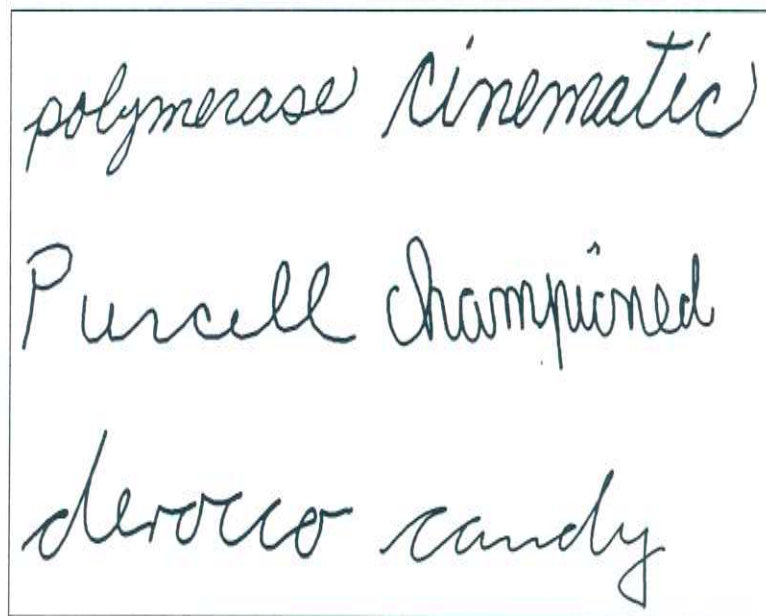 polymerase cinematic
Purcell championed
derocco candy